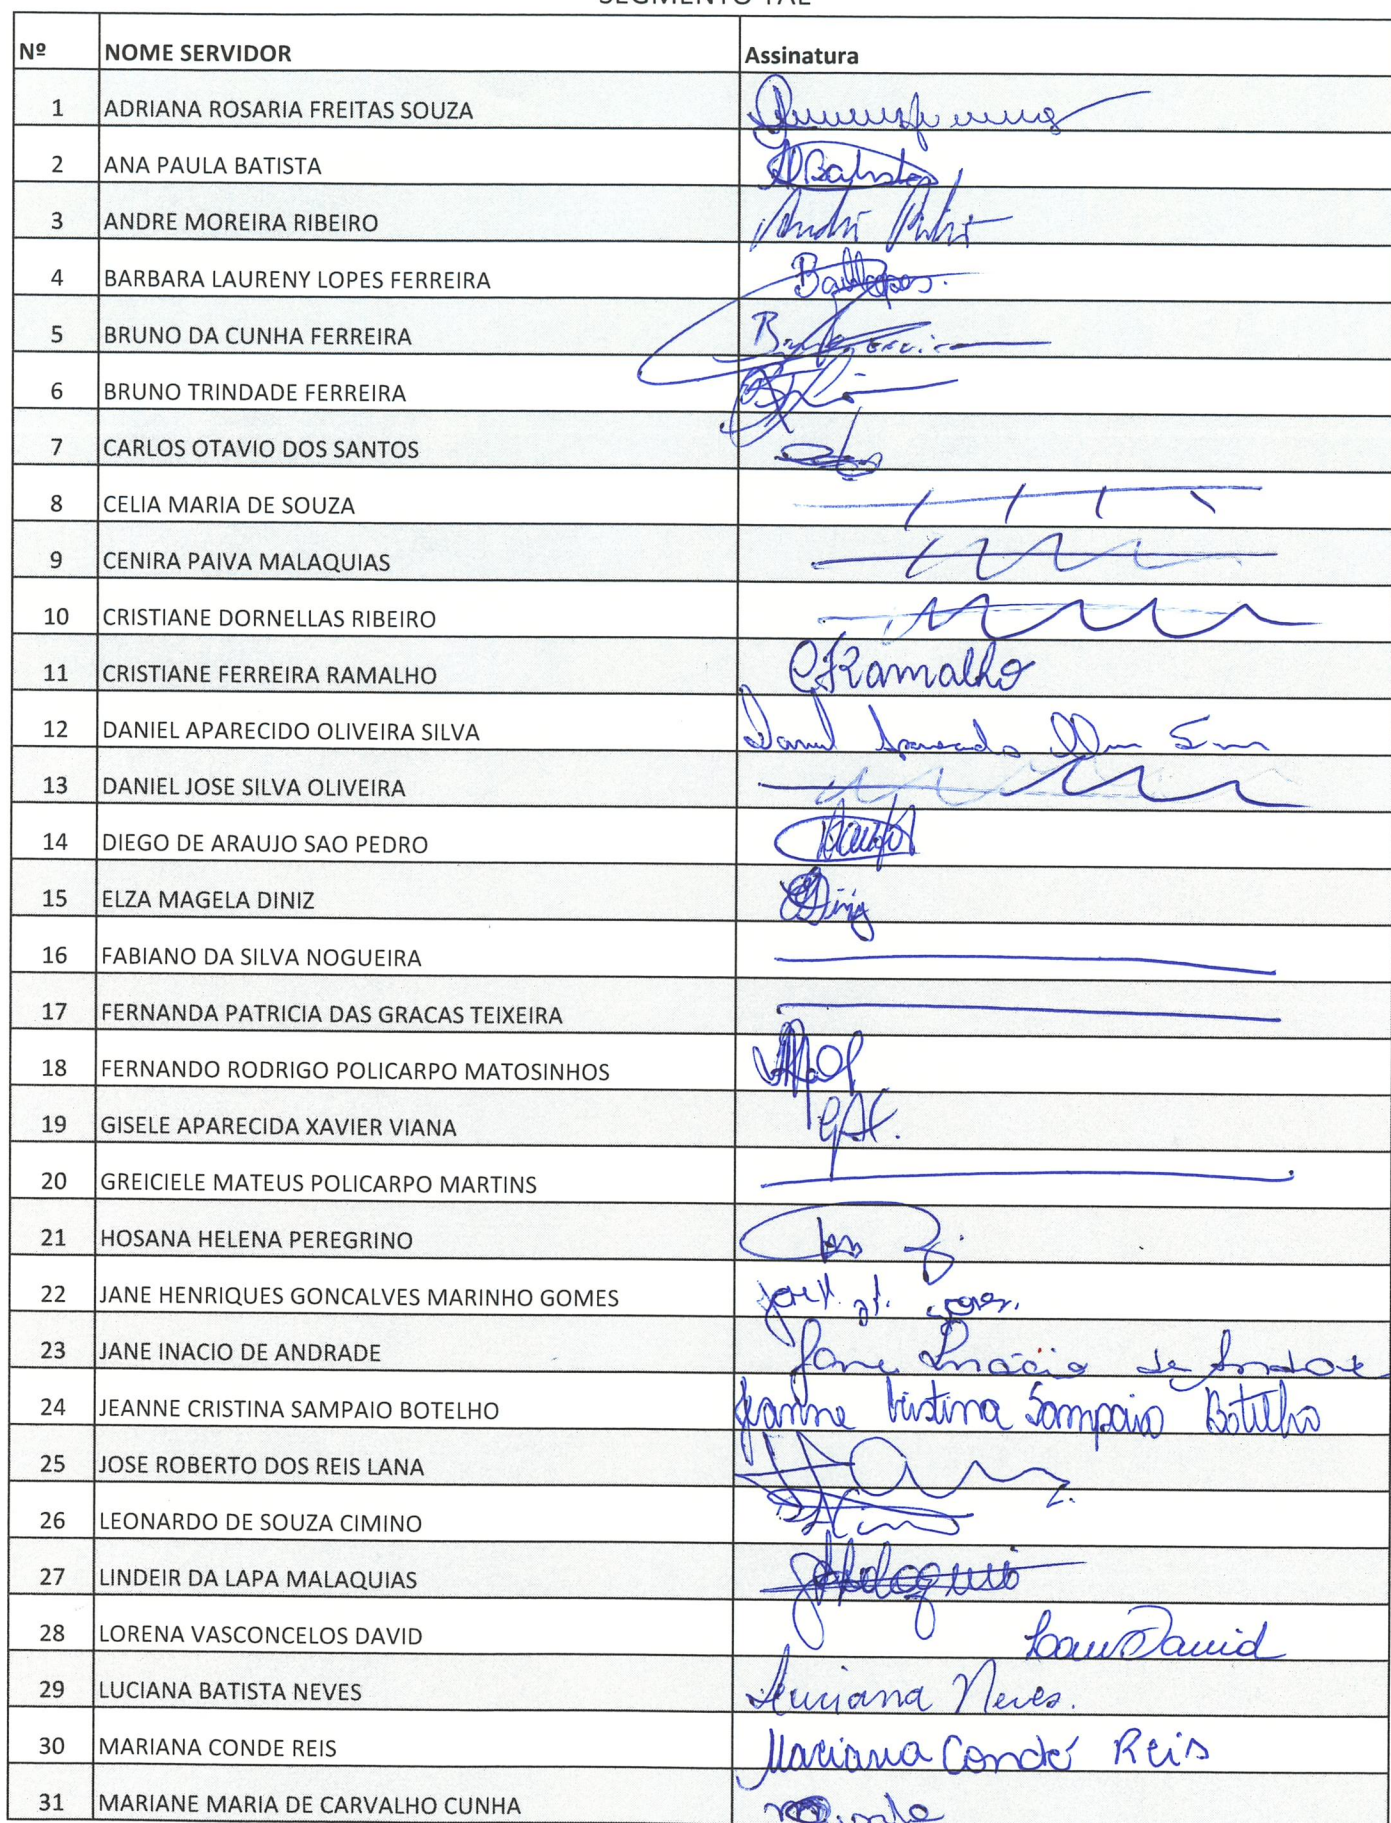 SEGMENTO TAE
Nº NOME SERVIDOR Assinatura
1 ADRIANA ROSARIA FREITAS SOUZA
2 ANA PAULA BATISTA ABatista
3 ANDRE MOREIRA RIBEIRO André
4 BARBARA LAURENY LOPES FERREIRA
5 BRUNO DA CUNHA FERREIRA
6 BRUNO TRINDADE FERREIRA
7 CARLOS OTAVIO DOS SANTOS
8 CELIA MARIA DE SOUZA
9 CENIRA PAIVA MALAQUIAS
10 CRISTIANE DORNELLAS RIBEIRO
11 CRISTIANE FERREIRA RAMALHO CFRamalho
12 DANIEL APARECIDO OLIVEIRA SILVA Daniel
13 DANIEL JOSE SILVA OLIVEIRA
14 DIEGO DE ARAUJO SAO PEDRO
15 ELZA MAGELA DINIZ
16 FABIANO DA SILVA NOGUEIRA
17 FERNANDA PATRICIA DAS GRACAS TEIXEIRA
18 FERNANDO RODRIGO POLICARPO MATOSINHOS
19 GISELE APARECIDA XAVIER VIANA
20 GREICIELE MATEUS POLICARPO MARTINS
21 HOSANA HELENA PEREGRINO
22 JANE HENRIQUES GONCALVES MARINHO GOMES
23 JANE INACIO DE ANDRADE Jane Inácio de Andrade
24 JEANNE CRISTINA SAMPAIO BOTELHO Jeanne Cristina Sampaio Botelho
25 JOSE ROBERTO DOS REIS LANA
26 LEONARDO DE SOUZA CIMINO
27 LINDEIR DA LAPA MALAQUIAS
28 LORENA VASCONCELOS DAVID David
29 LUCIANA BATISTA NEVES Luciana Neves.
30 MARIANA CONDE REIS Mariana Condé Reis
31 MARIANE MARIA DE CARVALHO CUNHA